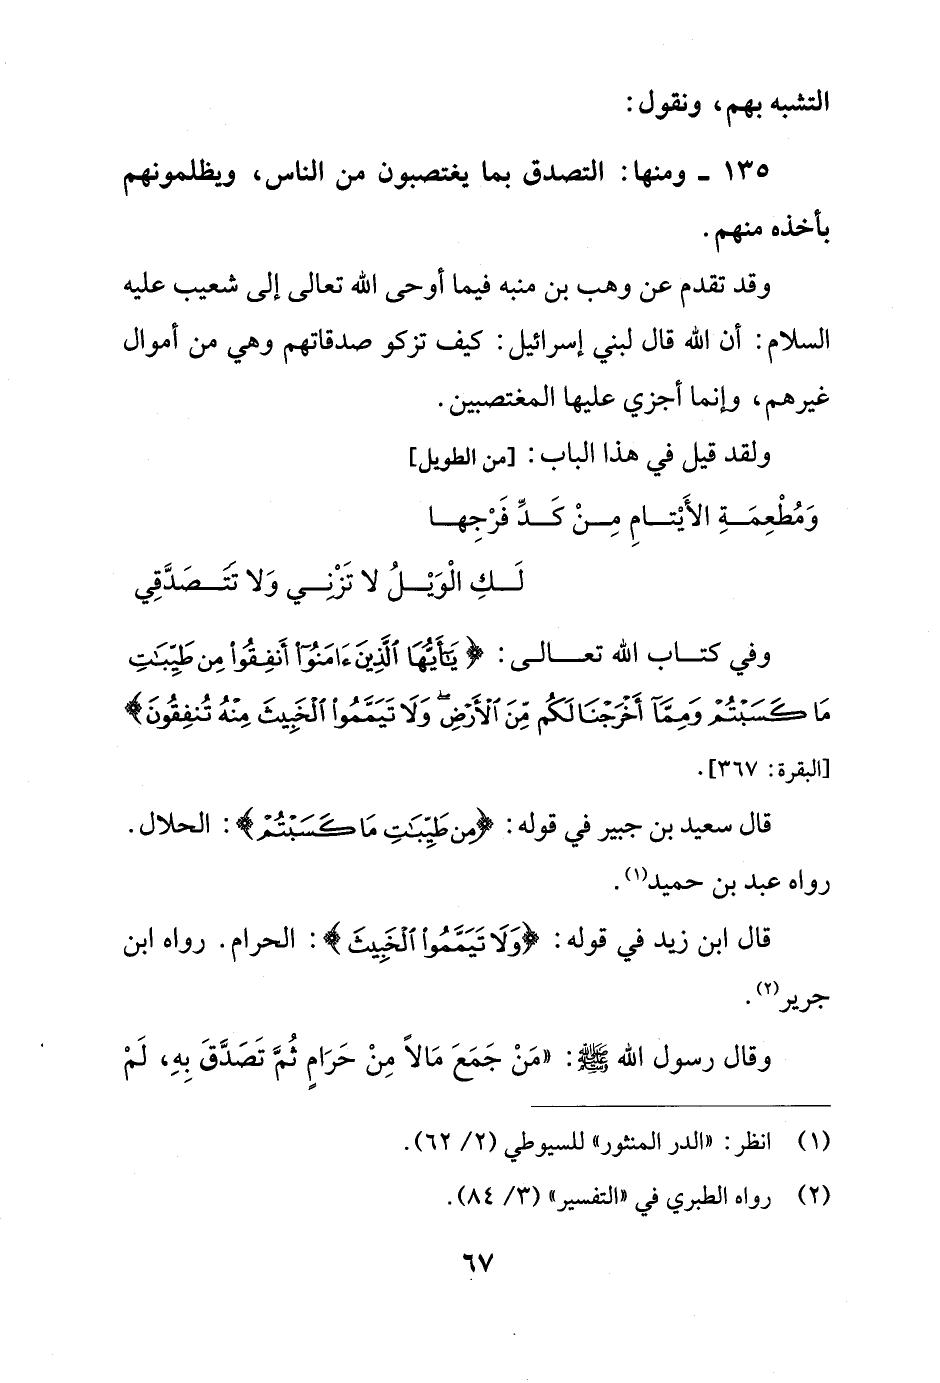 التشبه بهم، ونقول:
١٣٥ ـ ومنها: التصدق بما يغتصبون من الناس، ويظلمونهم
بأخذه منهم.
وقد تقدم عن وهب بن منبه فيما أوحى الله تعالى إلى شعيب عليه
السلام: أن الله قال لبني إسرائيل: كيف تزكو صدقاتهم وهي من أموال
غيرهم، وإنما أجزي عليها المغتصبين.
ولقد قيل في هذا الباب: [من الطويل]
وَمُطْعِمَةِ الأَيْتامِ مِنْ كَدِّ فَرْجِها
لَكِ الْوَيْلُ لا تَزْنِي وَلا تَتَصَدَّقِي
وفي كتاب الله تعالى: ﴿يَٰٓأَيُّهَا ٱلَّذِينَ ءَامَنُوٓا۟ أَنفِقُوا۟ مِن طَيِّبَٰتِ
مَا كَسَبْتُمْ وَمِمَّآ أَخْرَجْنَا لَكُم مِّنَ ٱلْأَرْضِ ۖ وَلَا تَيَمَّمُوا۟ ٱلْخَبِيثَ مِنْهُ تُنفِقُونَ﴾
[البقرة: ٣٦٧].
قال سعيد بن جبير في قوله: ﴿مِن طَيِّبَٰتِ مَا كَسَبْتُمْ﴾: الحلال.
رواه عبد بن حميد(١).
قال ابن زيد في قوله: ﴿وَلَا تَيَمَّمُوا۟ ٱلْخَبِيثَ﴾: الحرام. رواه ابن
جرير(٢).
وقال رسول الله ﷺ: «مَنْ جَمَعَ مَالاً مِنْ حَرَامٍ ثُمَّ تَصَدَّقَ بِهِ، لَمْ
(١) انظر: «الدر المنثور» للسيوطي (٢/ ٦٢).
(٢) رواه الطبري في «التفسير» (٣/ ٨٤).
٦٧